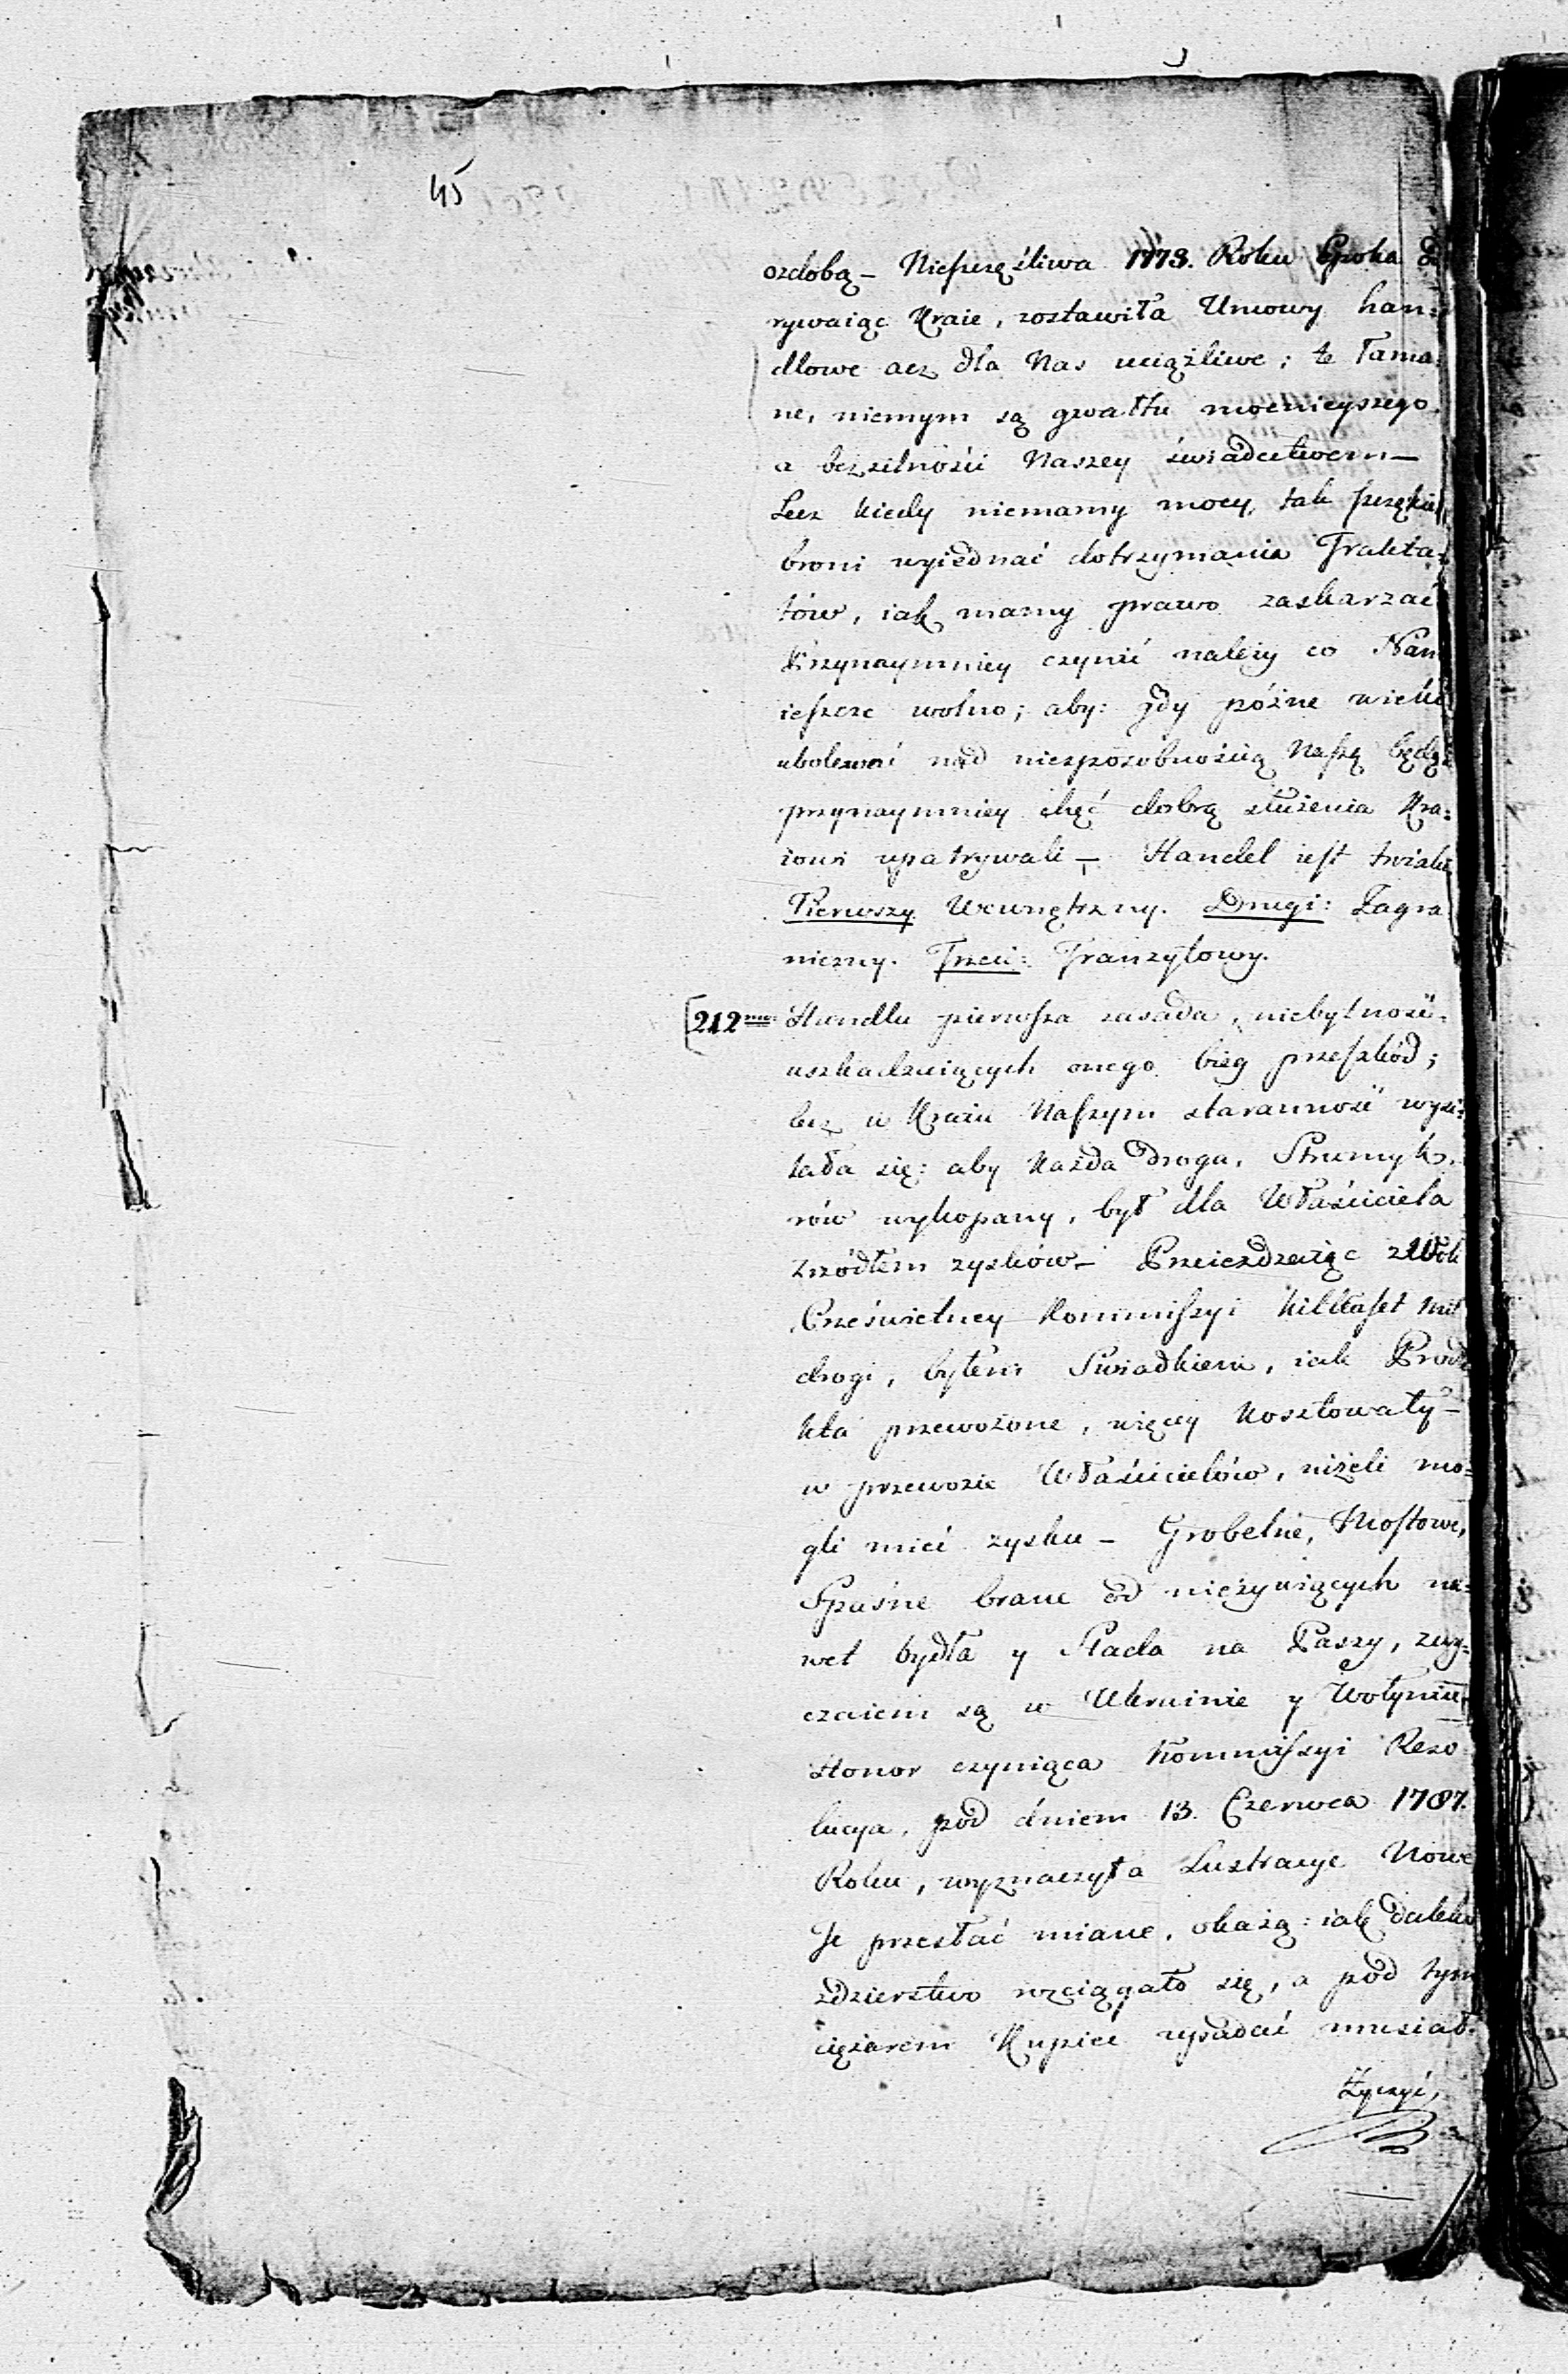 45
ozdobą – Nieszczęśliwa 1773. Roku Epoka
rywaiąc Kraie, zostawiła Umowy han:
dlowe acz dla Nas uciążliwe; te łama:
ne, niemym są gwałtu mocnieyszego,
a bezsilności Naszey świadectwem –
Lecz kiedy niemamy mocy, tak
broni wyiednać dotrzymania Trakta:
tów, iak mamy prawo zaskarzać
Przynaymniey czynić należy co Nam
ieszcze wolno; aby: gdy późne wieki
ubolewać nad niesposobnością Naszą będą
przynaymniey chęć dobrą służenia Kra:
iowi upatrywali – Handel iest troiaki
Pierwszy Wewnętrzny. Drugi: Zagra
niczny. Trzeci: Tranzytowy.
[212 Handlu pierwsza zasada, niebytność
uszkadzaiących onego bieg przeszkód;
lecz w Kraiu Naszym staranność wysi:
lała się: aby każda droga, Strumyk,
rów wykopany, był dla Właściciela
zrzódłem zysków – Przeieżdżaiąc z Woli
Prześwietney Kommiszyi kilkaset mil
drogi, byłem Swiadkiem, iak Produ
kta przewożone, więcey kosztowały –
w przewozie Właścicielów, niżeli mo:
gli mieć zysku – Grobelne, Mostowe,
Spaśne brane od nieżywiących na:
wet bydła y Stada na Paszy, zwy:
czaiem są w Ukrainie y Wołyniu,
Honor czyniąca Kommiszyi Rezo
lucya, pod dniem 13. Czerwca 1787.
Roku, wyznaczyła Lustracye Nowe
Te przestać miane, okażą: iak daleko
zdzierstwo rozciągało się, a pod tym
ciężarem Kupiec upadać musiał.
Życzyć,